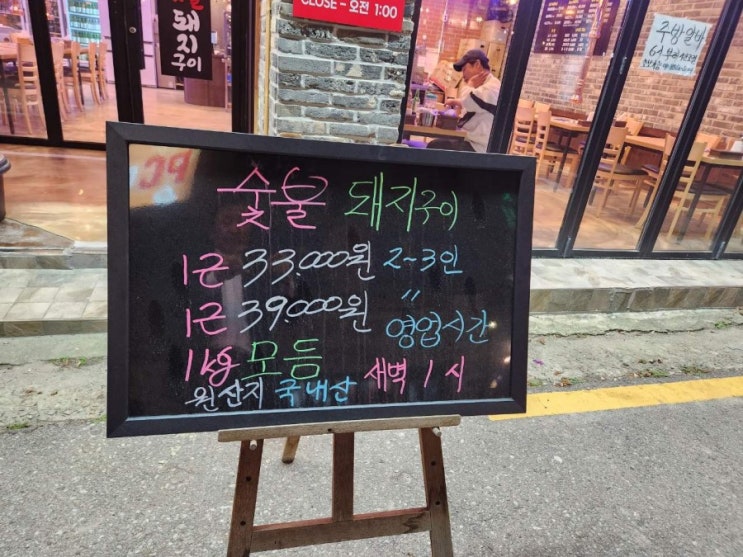 CLOSE - 오전 1:00
돼지
구이
주방알바
숯불 돼지구이
1근 33.000원 2~3인
1근 39.000원 〃
영업시간
1kg 모듬 새벽 1시
원산지 국내산